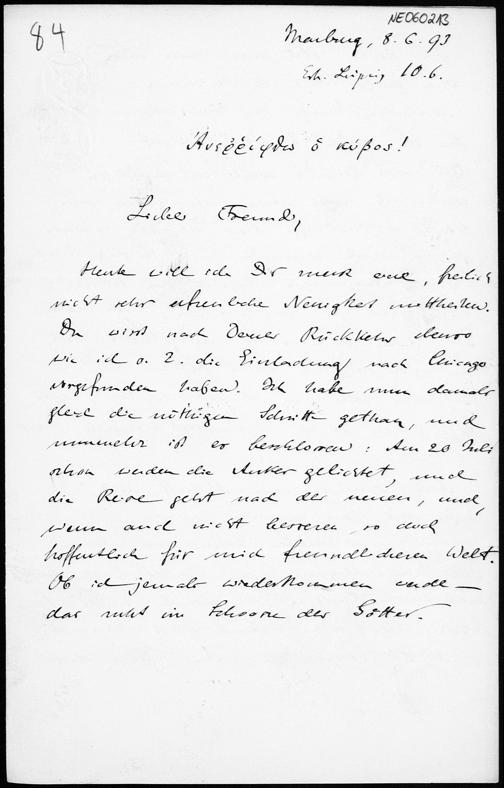 NE060213
84
Marburg, 8. 6. 93
Erh. Leipzig 10.6.
Ἀνεῤῥίφθω ὁ κύβος!
Lieber Freund,
Heute will ich Dir nur eine, freilich
nicht sehr erfreuliche Neuigkeit mittheilen.
Du wirst nach Deiner Rückkehr ebenso
wie ich s. Z. die Einladung nach Chicago
vorgefunden haben. Ich habe nun damals
gleich die nöthigen Schritte gethan, und
nunmehr ist es beschlossen: Am 20 Juli
schon werden die Anker gelichtet, und
die Reise geht nach der neuen, und,
wenn auch nicht besseren, so doch
hoffentlich für mich freundlicheren Welt.
Ob ich jemals wiederkommen werde –
das ruht im Schoosse der Götter.